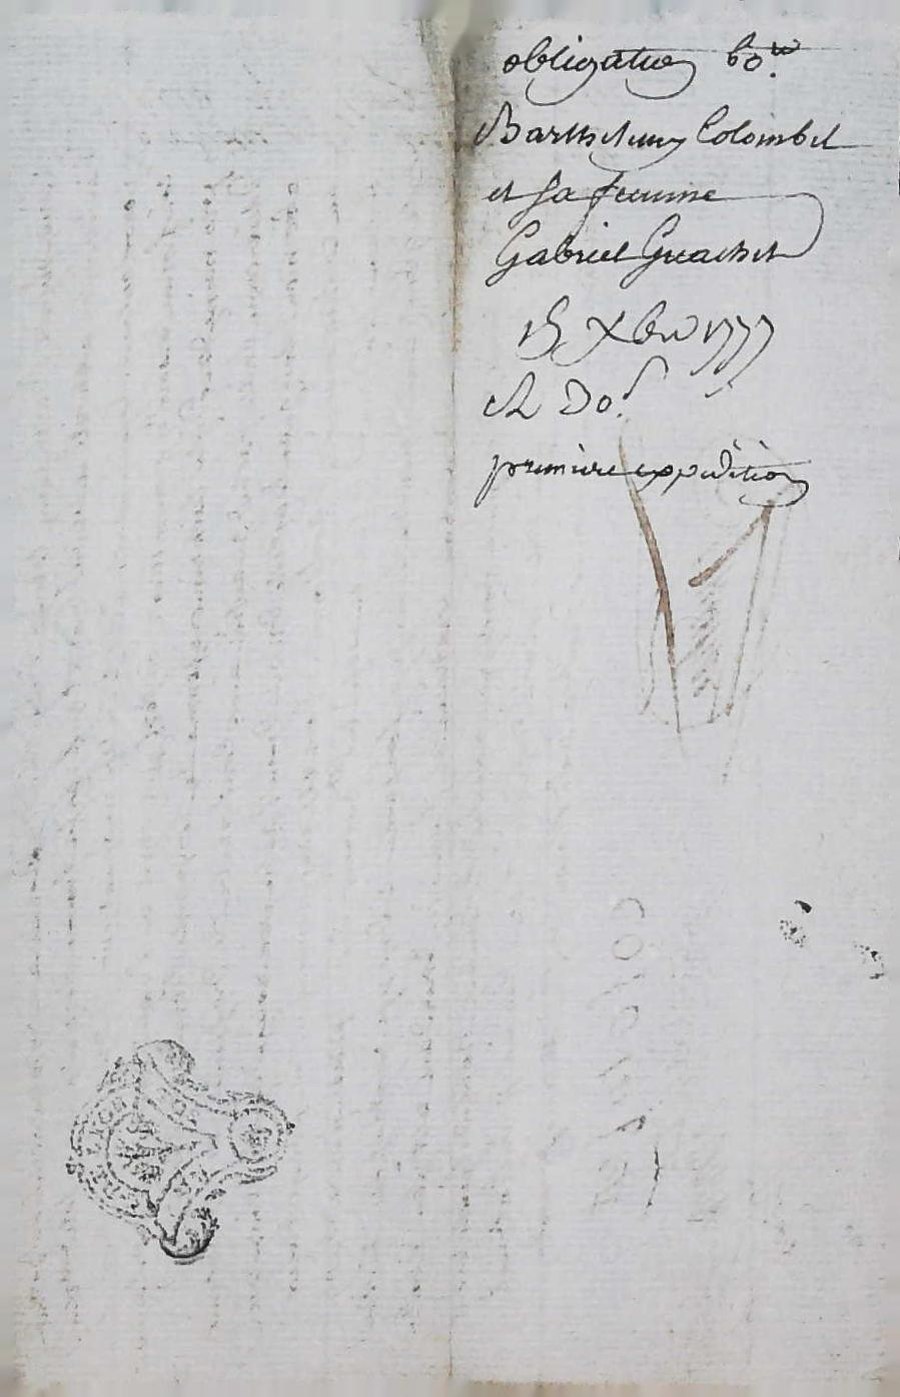 obligation 60.tt
Barthelemy Colombet
et sa femme
Gabriel Guachet
15 Xbre 1777
Do.
première exppédition